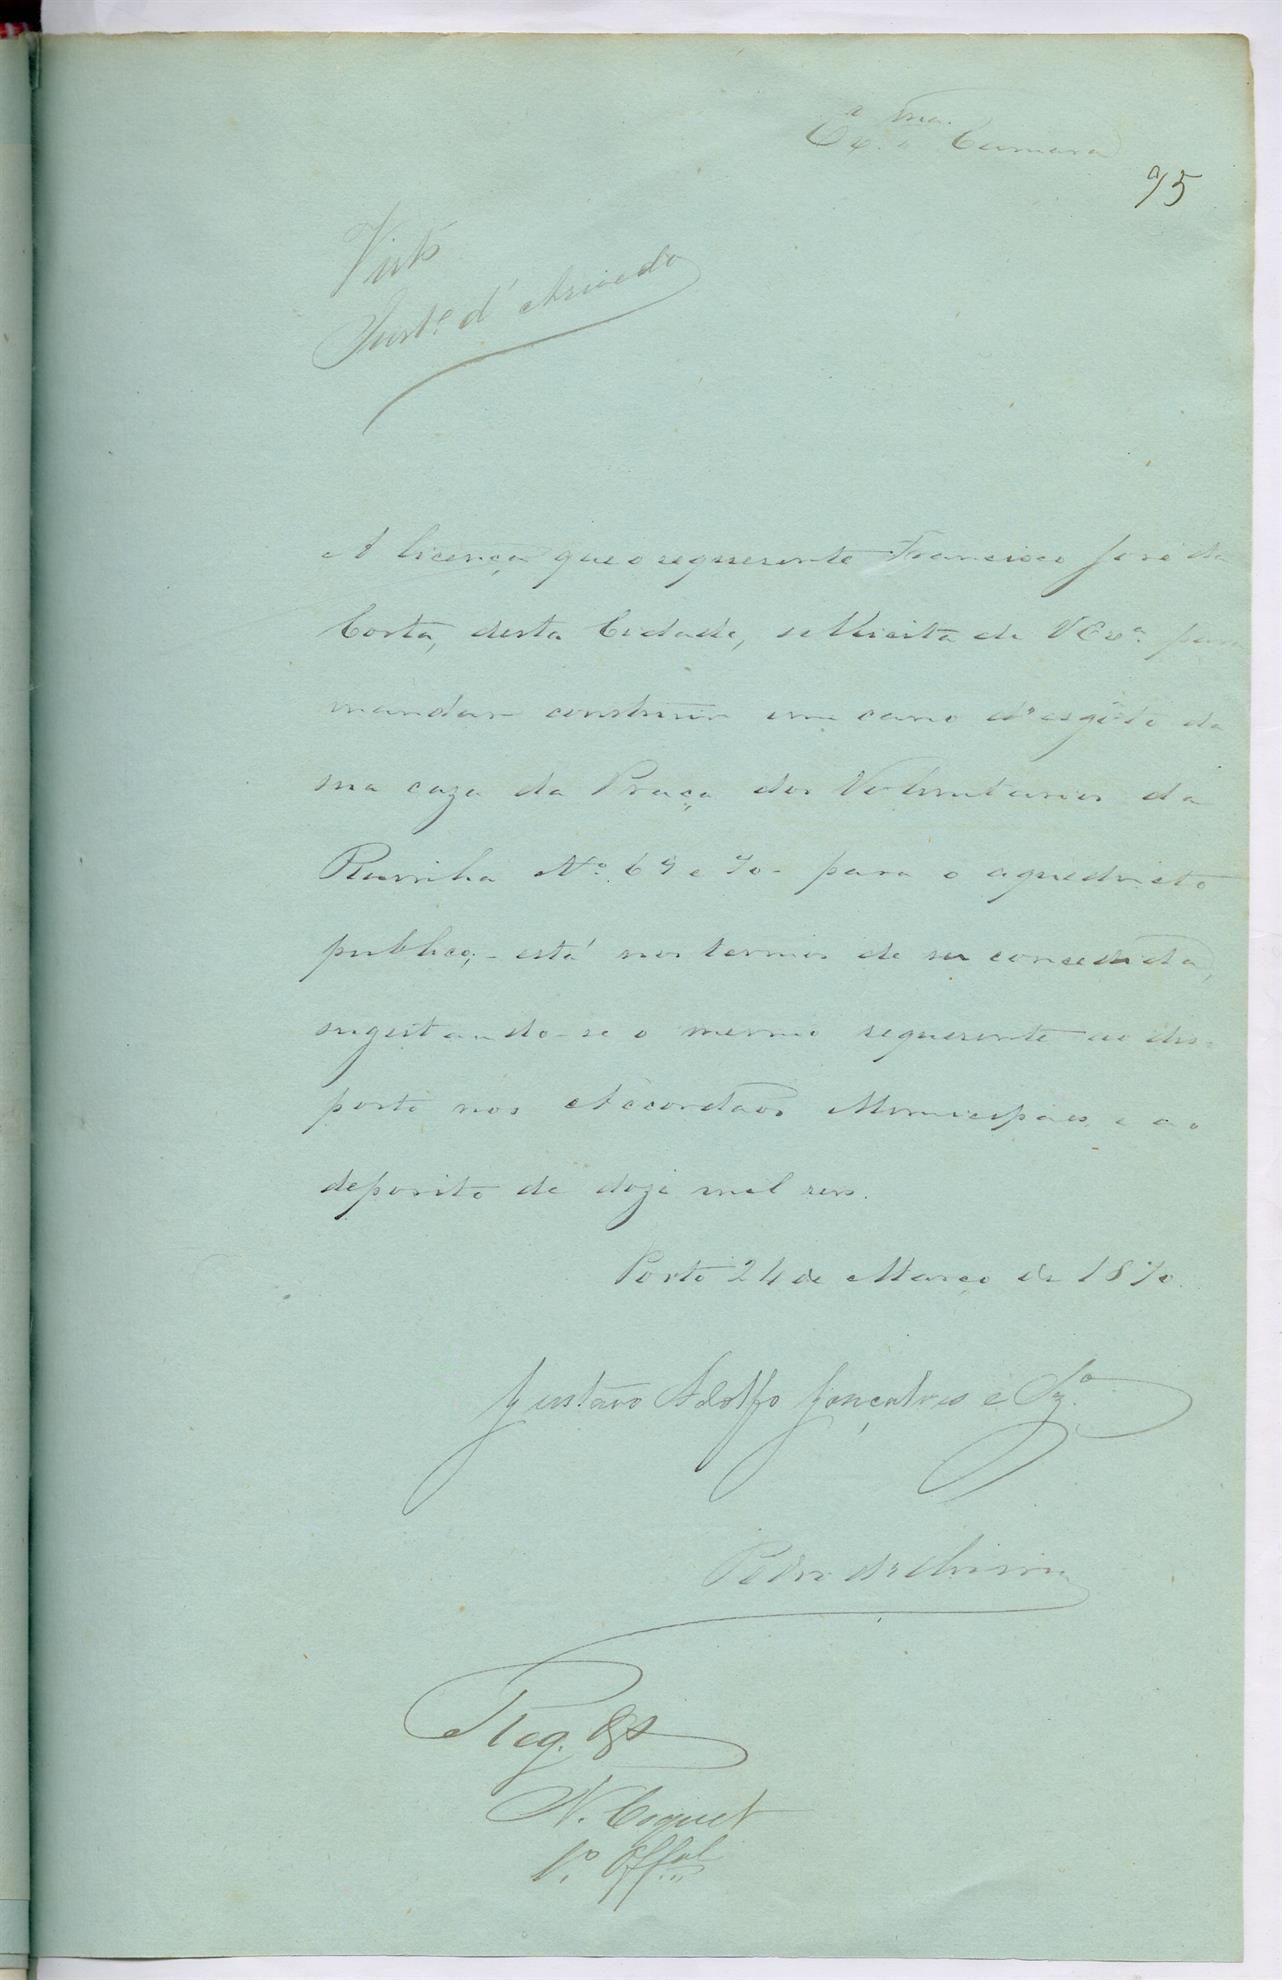 Ex.ma Camara
95
Visto
Just.e d'Azevedo
A licença que o requerente Francisco José da
Costa, desta Cidade, sollicita de V Ex.a para
mandar construir um cano d'esgôto da
sua caza da Praça dos Voluntarios da
Rainha N.o 69 e 70 - para o aqueducto
publico, - está nos termos de ser concedida,
sugeitando-se o mesmo requerente ao dis-
posto nos Accordãos Municipaes e ao
deposito de doze mil reis.
Porto 24 de Março de 1870.
Gustavo Adolfo Gonçalves e Sz.a
Pedro de Oliveira
Reg.
N. Coquet
1.o Off.al